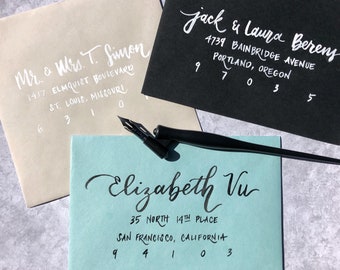 Mr. & Mrs T. Simon
1457 Elmquist Boulevard
St. Louis, Missouri
6 3 1 0 1
jack & Laura Berens
4739 Bainbridge Avenue
Portland, Oregon
9 7 0 3 5
Elizabeth Vu
35 North 14th Place
San Francisco, California
9 4 1 0 3